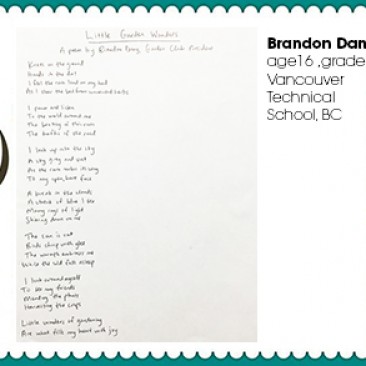 Little Garden Wonders
A poem by Brandon Dang, Garden Club President
Knees on the ground
Hands in the dirt
I feel the rain land on my back
As I clear the bed from unwanted herbs
I pause and listen
To the world around me
The beating of the rain
The traffic of the road
I look up into the sky
A sky grey and wet
As the rain
To my open face
A break in the clouds
A shade of blue I see
Many rays of light
Shining down on me
The sun is out
Birds chirp with glee
The warmth embraces me
While the cold falls asleep
I look around myself
To see my friends
Planting the plants
Harvesting the crops
Little wonders of gardening
Are what fills my heart with joy
Brandon Dan
age16 ,grade
Vancouver
Technical
School, BC